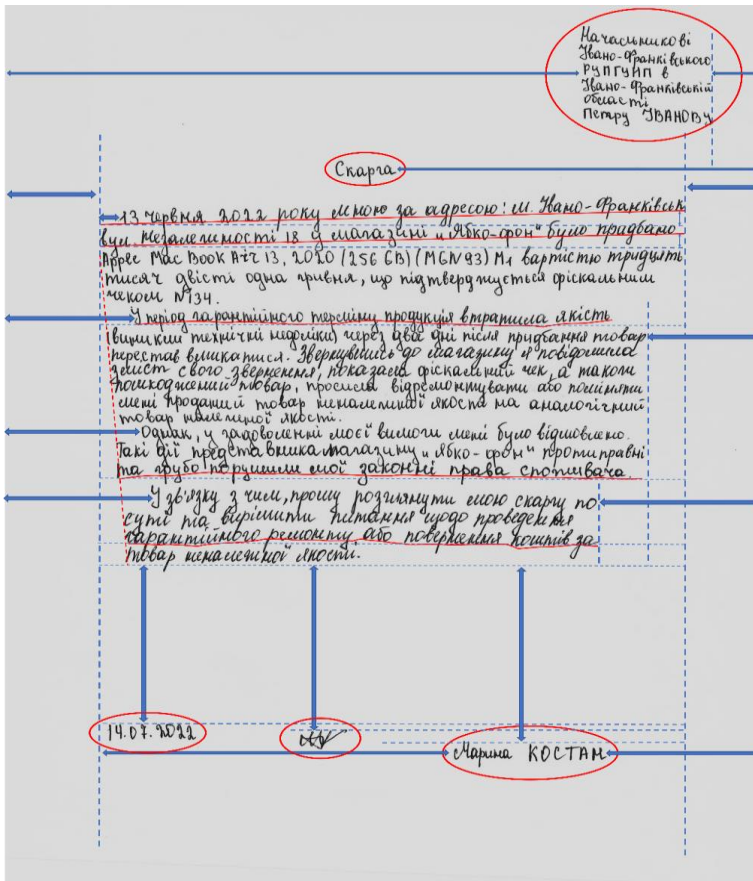 Начальникові
Івано-Франківського
РУПГУНП в
Івано-Франківській
області
Петру ІВАНОВУ
Скарга
13 червня 2022 року мною за адресою: м. Івано-Франківськ
вул. Незалежності 18 у магазині „Ябко-фон" було придбано
Apple Mac Book Air 13, 2020 (256 GB) (MGN93) M1 вартістю тридцять
тисяч двісті одна гривня, що підтверджується фіскальним
чеком №134.
У період гарантійного терміну продукція втратила якість
(виникли технічні недоліки) через два дні після придбання товар
перестав вмикатися. Звернувшись до магазину я повідомила
зміст свого звернення, показала фіскальний чек, а також
пошкоджений товар, просила відремонтувати або поміняти
мені проданий товар неналежної якости на аналогічний
товар належної якості.
Однак, у задоволенні моєї вимоги мені було відмовлено.
Такі дії представника магазину „Ябко-фон" протиправні
та грубо порушили мої законні права споживача
У зв'язку з чим, прошу розглянути мою скаргу по
суті та вирішити питання щодо проведення
гарантійного ремонту або повернення коштів за
товар неналежної якости.
14.07.2022
Марина КОСТАН